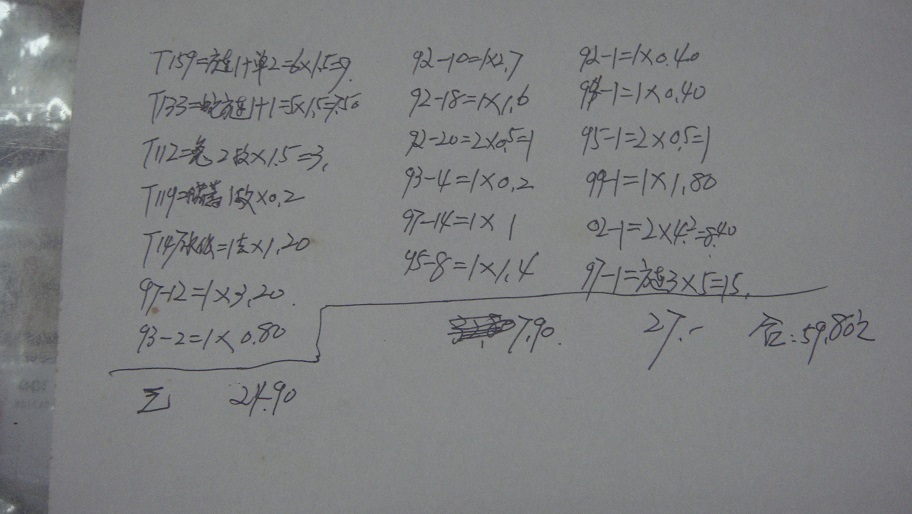 T159=方连1+单2=6×1.5=9.
T133=方连1+1=5×1.5=7.50
T112=兔2枚×1.5=3.
T119=1枚×0.2
T147张1×1,20
97-12=1×3,20.
93-2=1×0.80
24.90
92-10=1×2.7
92-18=1×1,6
92-20=2×0.5=1
93-4=1×0.2
97-14=1×1
95-8=1×1,4
7.90.
92-1=1×0.40
94-1=1×0.40
95-1=2×0.5=1
99-1=1×1,80
02-1=2×4.2=8.40
97-1=方连3×5=15.
27.-
合:59.80元